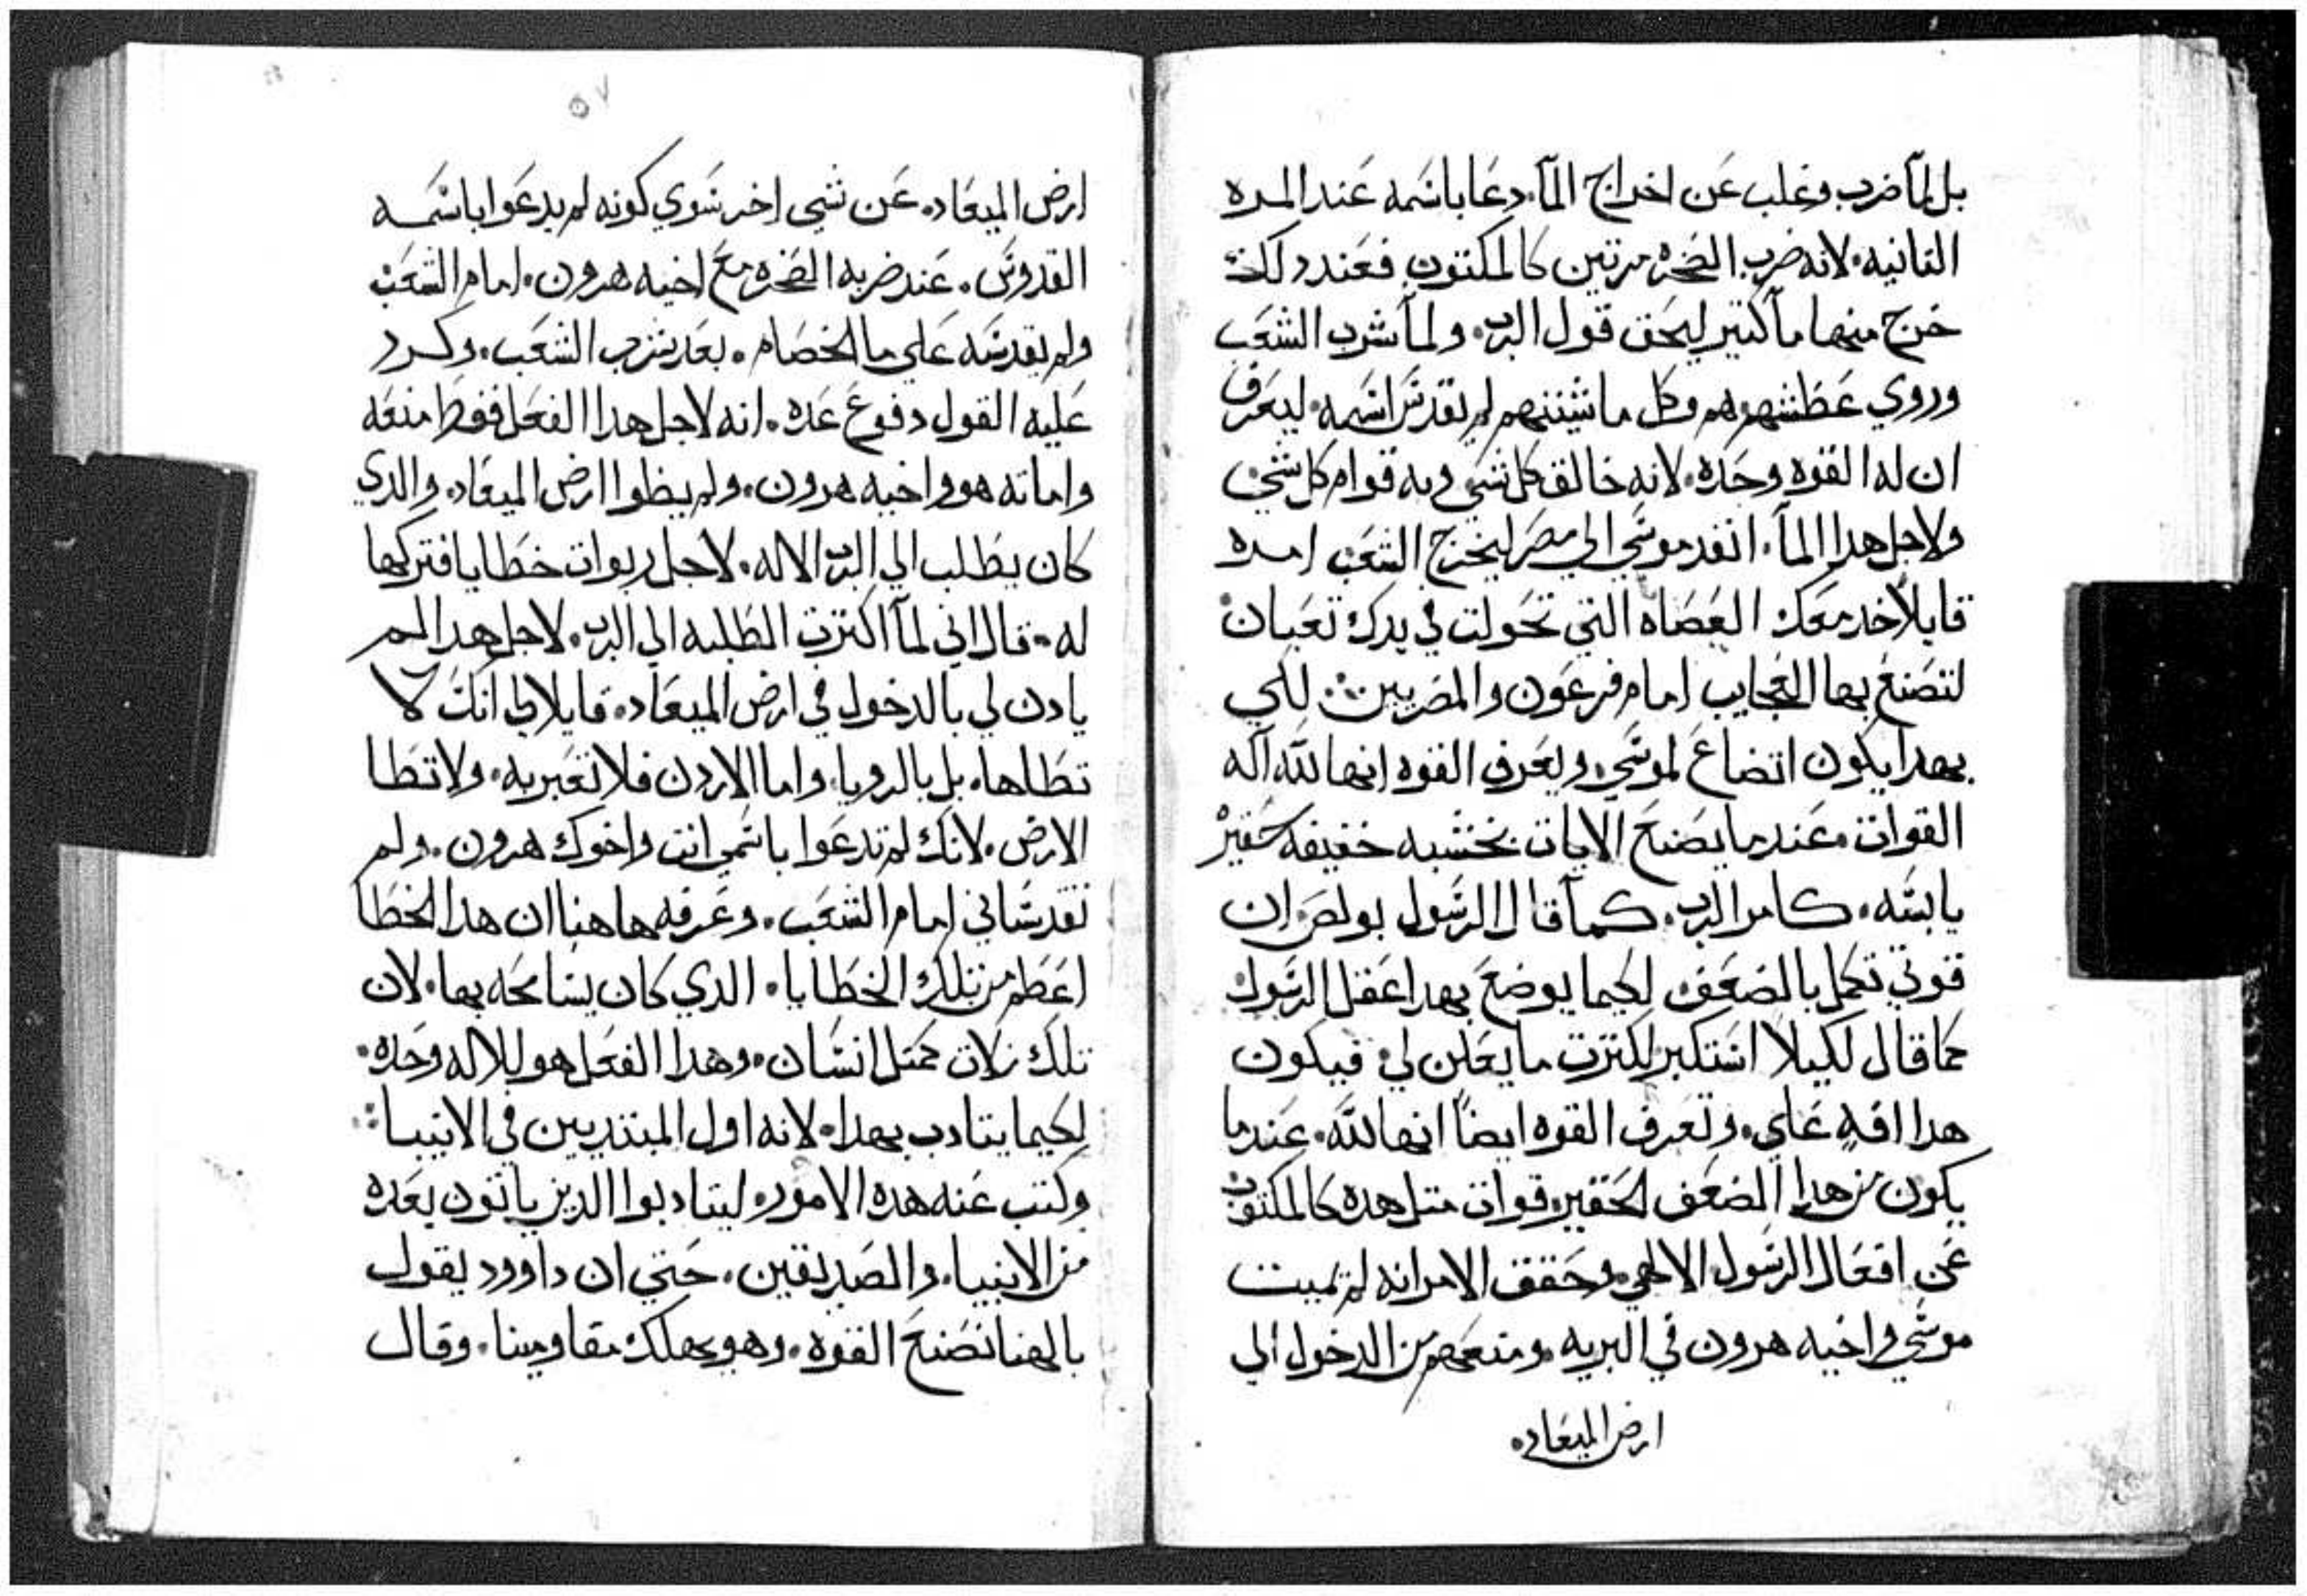 بل لمآ ضرب وغلب عن اخراج المآ. دعا باسمه عند المره
التانيه. لانه ضرب الصخره مرتين كالمكتوب فعند دلك
خرج منها مآ كتير ليحق قول الرب. ولمآ شرب الشعب
وروي عطشهم هم وكل ماشيتهم لم يقدس اسمه. ليعرف
ان له القوه وحده. لانه خالق كل شي وبه قوام كل شي
ولاجل هدا المآ. انفد موسي الي مصر ليخرج الشعب امره
قايلاً خد معك العصاه التي تحولت في يدك تعبان
لتصنع بها العجايب امام فرعون والمصريين. لكي
بهدا يكون اتضاع لموسي. ويعرف القوه انها لله اله
القوات. عند ما يصنع الايات بخشبه خفيفه حقير
يابسه. كامر الرب. كمآ قال الرسول بولص. ان
قوتي تكمل بالضعف. لكيما يوضع بهدا عقل الرسول
كما قال لكيلا استكبر لكترت ما يعلن لي. فيكون
هدا افه علي. وتعرف القوه ايضاً انها لله. عند ما
يكون من هدا الضعف الحقير. قوات متل هده كالمكتوب
عن افعال الرسول الالهي. وحقق الامر انه لم تميت
موسي واخيه هرون في البريه. ومنعهم من الدخول الي
ارض الميعاد.
٥٧
ارض الميعاد. عن شي اخر سوي كونه لم يدعوا باسمه
القدوس. عند ضربه الصخره مع اخيه هرون. امام الشعب
ولم يقدسه علي ما الخصام. بعد شرب الشعب. وكرر
عليه القول دفوع عده. انه لاجل هدا الفعل فقط منعه
واماته هو واخيه هرون. ولم يطوا ارض الميعاد. والدي
كان يطلب الي الرب الاله. لاجل ربوات خطايا فتركها
له. قال اني لمآ اكترت الطلبه الي الرب. لاجل هدا لم
يادن لي بالدخول في ارض الميعاد. قايلا لي انك لا
تطاها. بل بالرويا. واما الاردن فلا تعبر به. ولا تطا
الارض. لانك لم تدعوا باسمي انت واخوك هرون. ولم
تقدساني امام الشعب. وعرفه هاهنا ان هدا الخطا
اعظم من تلك الخطايا. الدي كان يسامحه بها. لان
تلك زلات كمتل انسان. وهدا الفعل هو للاله وحده.
لكيما يتادب بهدا. لانه اول المبتديين في الانبيا.
وكتب عنه هده الامور. ليتادبوا الدين ياتون بعده
من الانبيا. والصديقين. حتي ان داوود يقول
بالهنا نصنع القوه. وهو يهلك مقاومينا. وقال